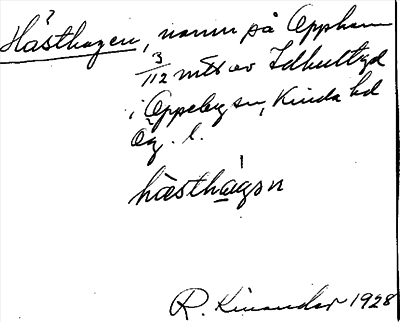 Hästhagen, namn på Opphem
3/112 mtl av Idhultryd
i Oppeby sn, Kinda hd
Ög. l.
hæsthagən
R. Kinander 1928